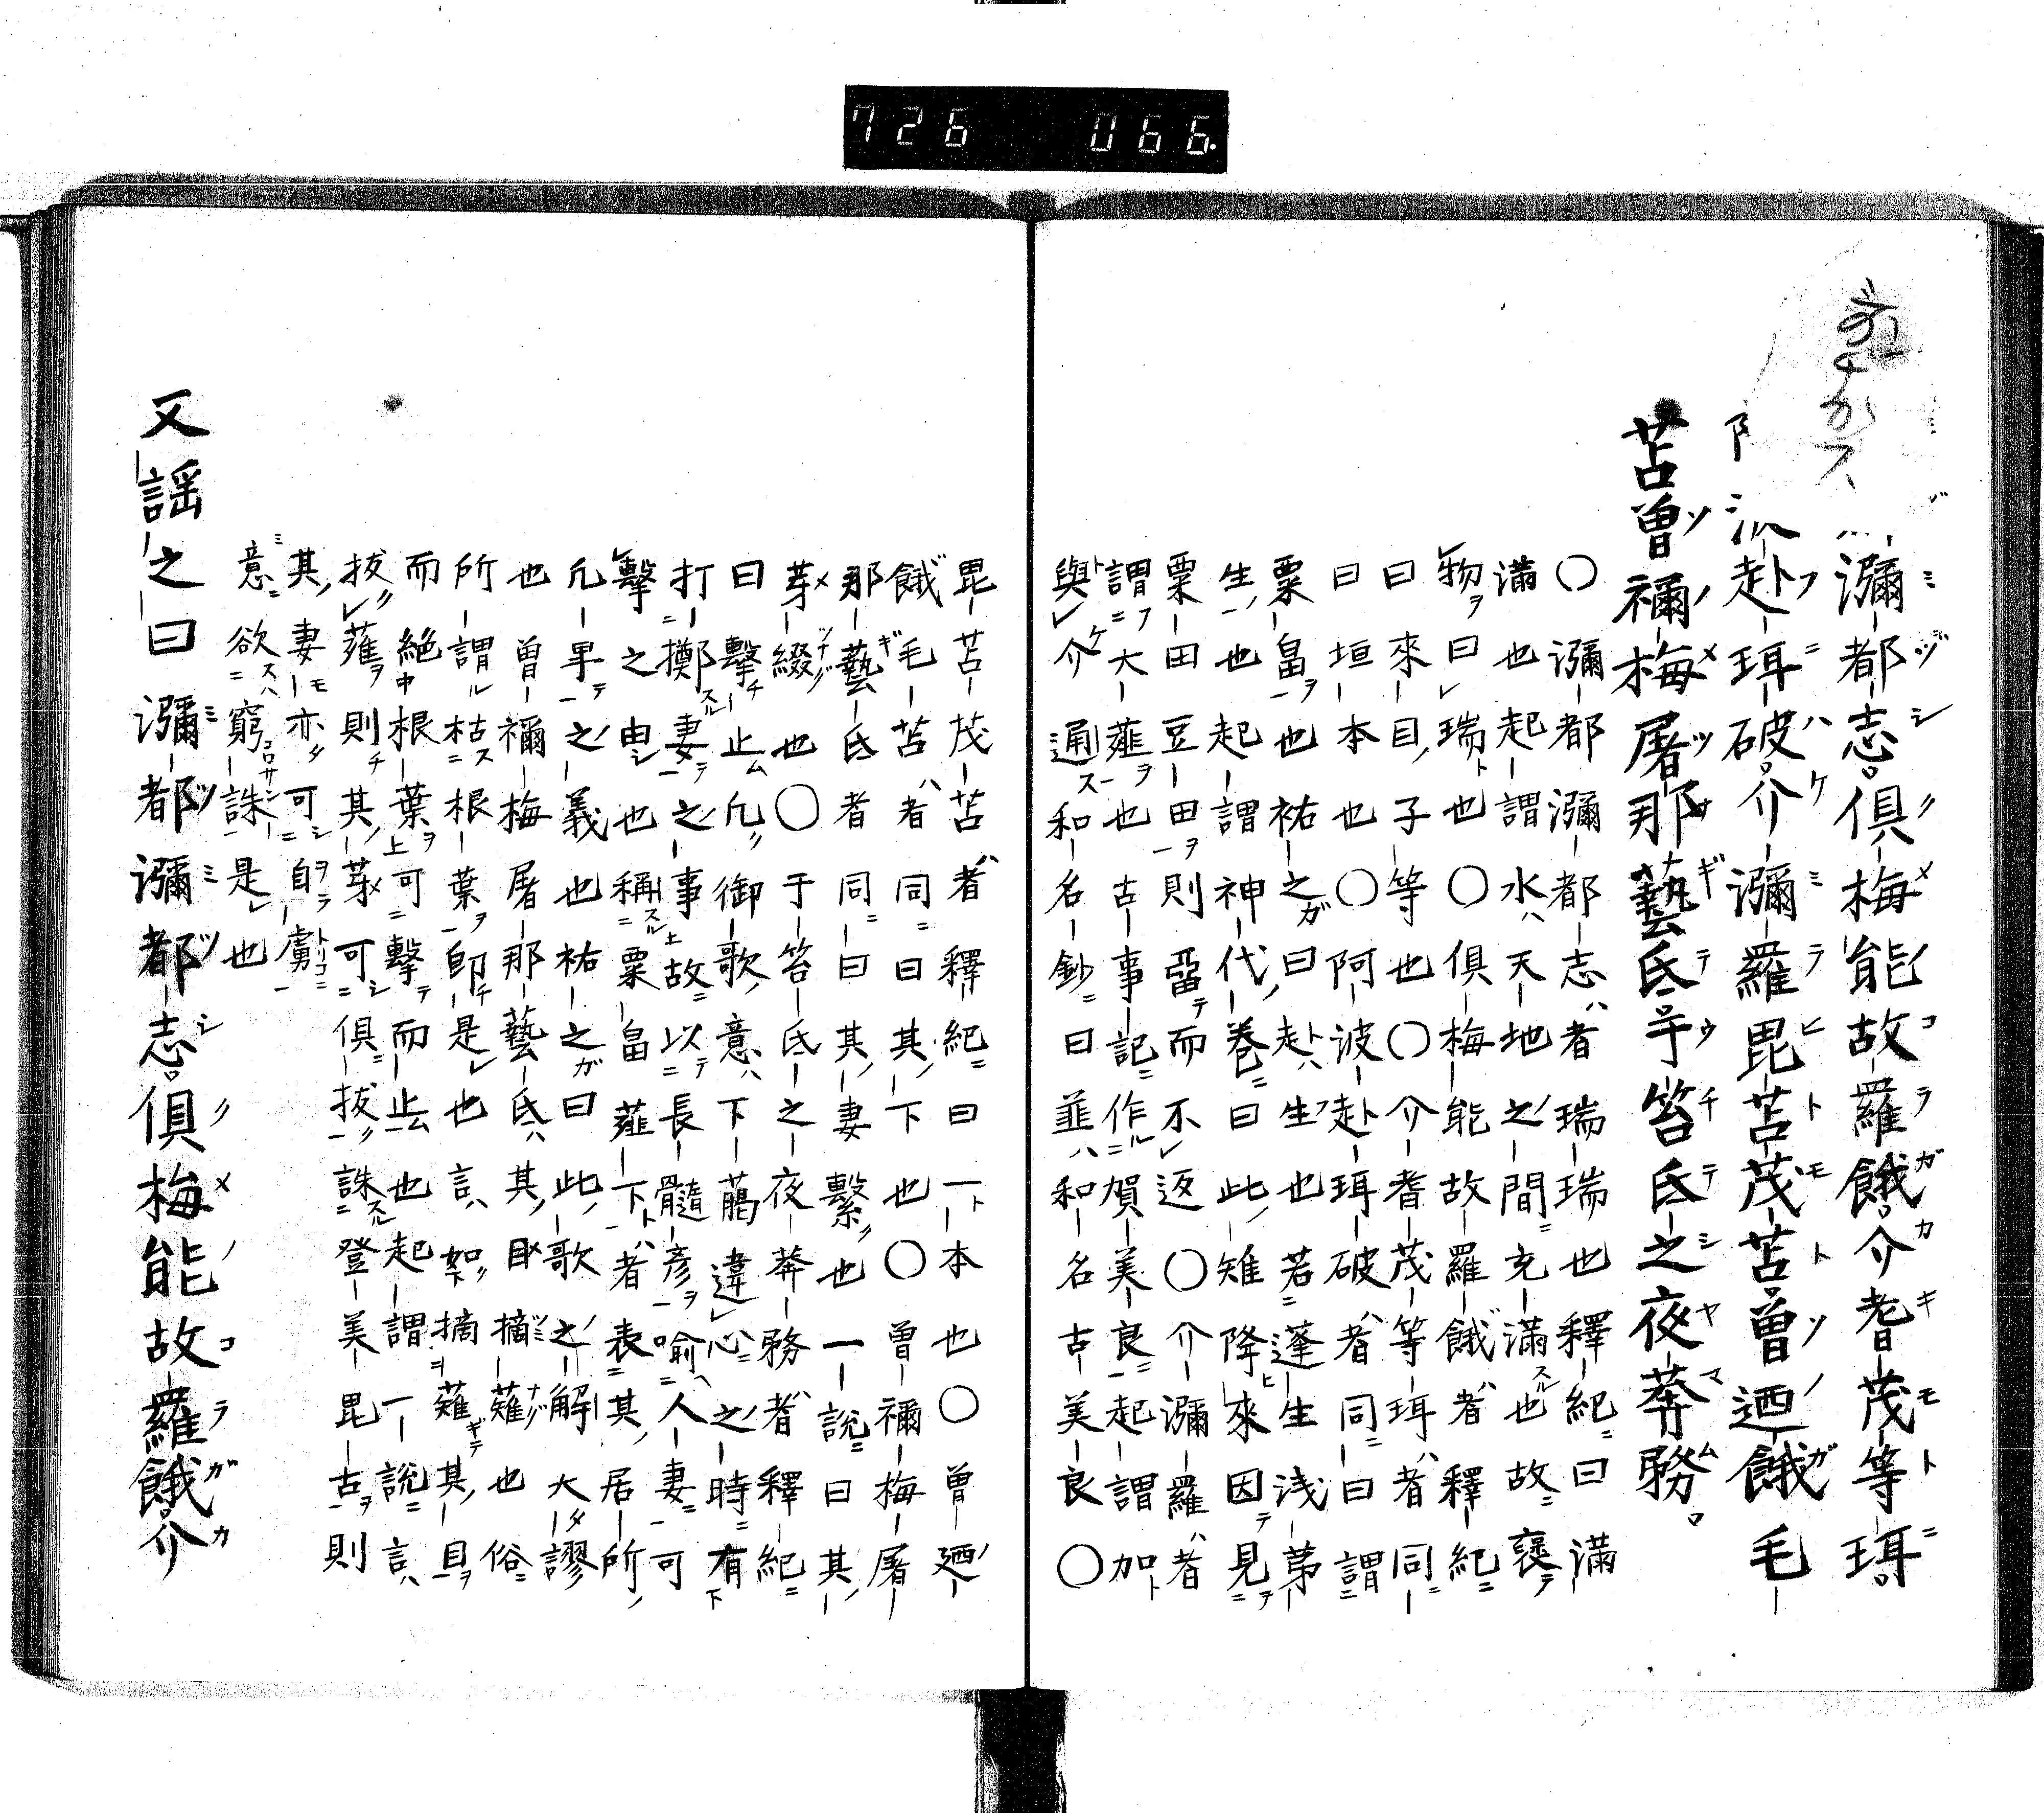 726 066.
瀰都志倶梅能故羅餓介耆茂等珥
派赴珥破介瀰羅毘苫茂苫曽廼餓毛
苫曽禰梅屠那藝氐于笞氐之夜莽務
〇瀰都瀰都志者瑞瑞也釋紀曰滿
滿也起謂水天地之間充滿也故褒
物曰瑞也〇倶梅能故羅餓者釋紀
曰來目子等也〇介耆茂等珥者同
曰垣本也〇阿波赴珥破者同曰謂
粟畠也祐之曰赴生也若蓬生浅茅
生也起謂神代巻曰此雉降來因見
粟田豆田則留而不返〇介瀰羅者
謂大薤也古事記作賀美良起謂加
與介通和名鈔曰韮和名古美良〇
毘苫茂苫者釋紀曰一本也〇曽廼
餓毛苫者同曰其下也〇曽禰梅屠
那藝氐者同曰其妻繫也一説曰其
芽綴也〇于笞氐之夜莽務者釋紀
曰擊止凢御歌意下﨟違心之時有
打擲妻之事故以長髓彦喻人妻可
擊之由也稱粟畠薤下者表其居所
凢早之義也祐之曰此歌之解大謬
也曽禰梅屠那藝氐其目摘薤也俗
所謂枯根葉即是也言摘薤其且
而絶根葉可擊而止也起謂一説言
拔薤則其芽可倶拔誅登美毘古則
其妻亦可自虜
意欲窮誅是也
又謡之曰瀰都瀰都志倶梅能故羅餓介